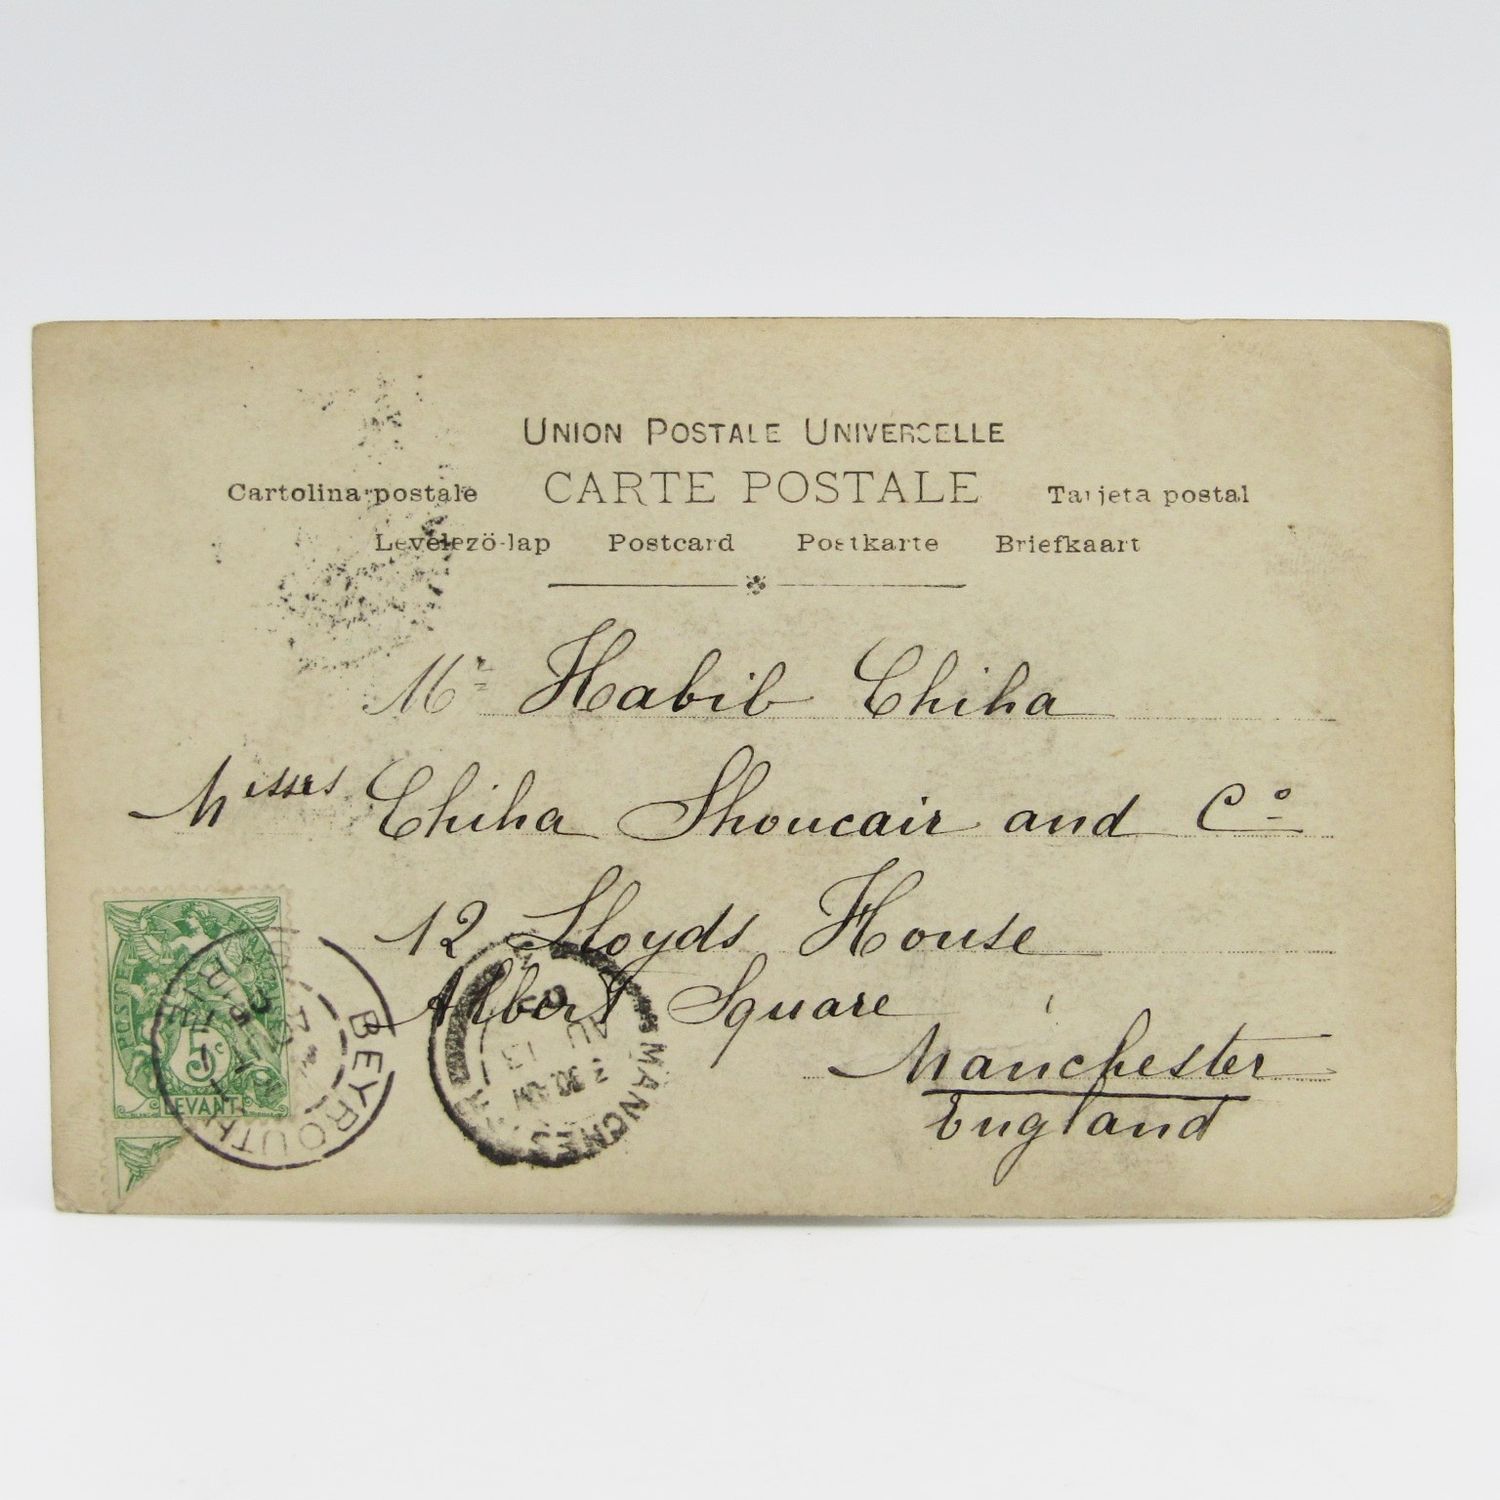 UNION POSTALE UNIVERSELLE
Cartolina postale CARTE POSTALE Tarjeta postal
Levelezö-lap Postcard Postkarte Briefkaart
Mr Habib Chiha
Messrs Chiha Shoucair and Co
12 Lloyds House
Albert Square
Manchester
England
POSTES
5c
LEVANT
BEYROUTH
MANCHESTER